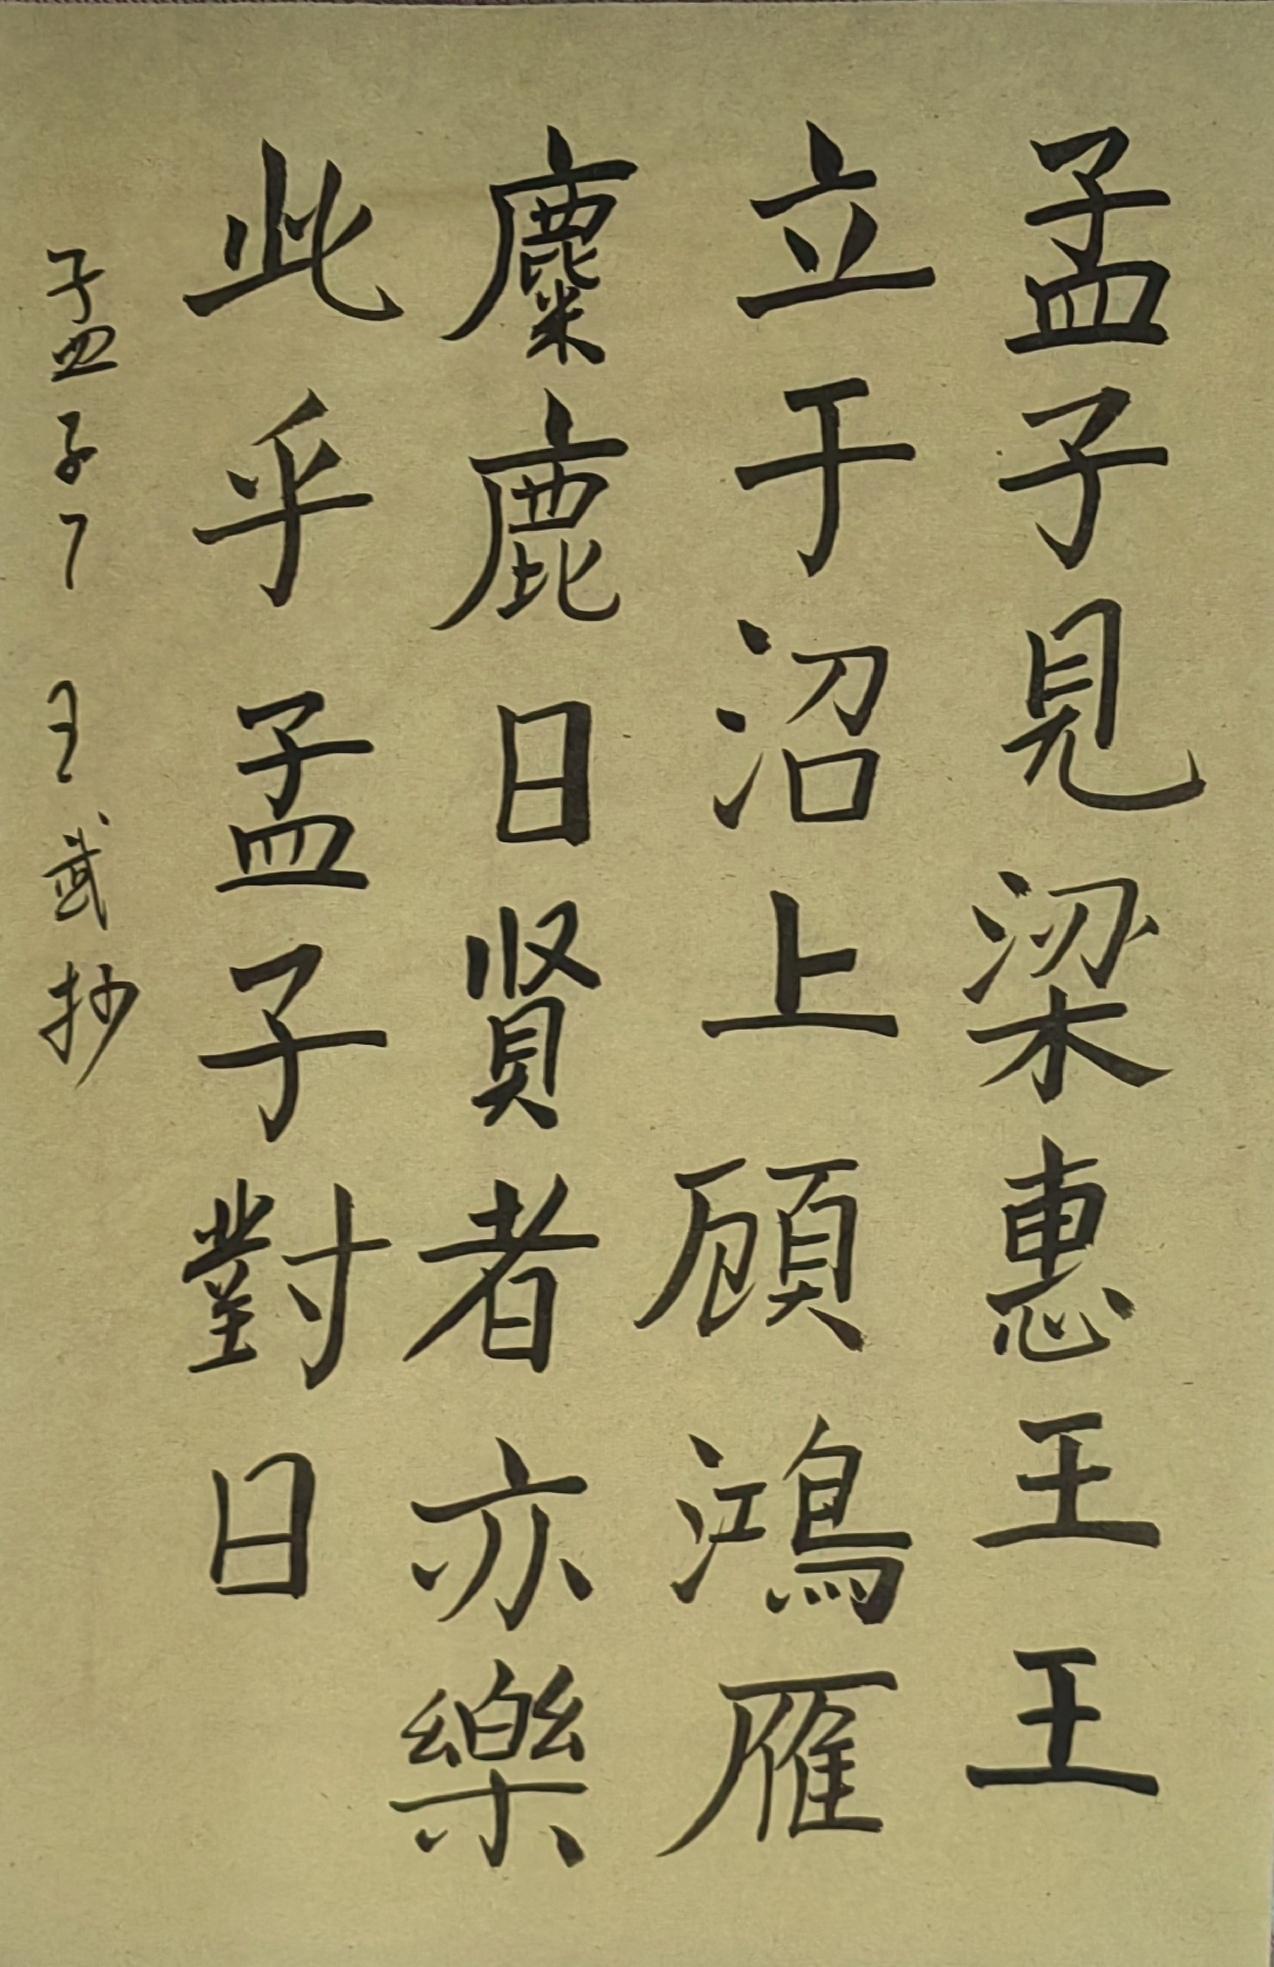 孟子見梁惠王王
立于沼上顧鴻雁
麋鹿曰贤者亦樂
此乎孟子對曰
孟子 王武抄